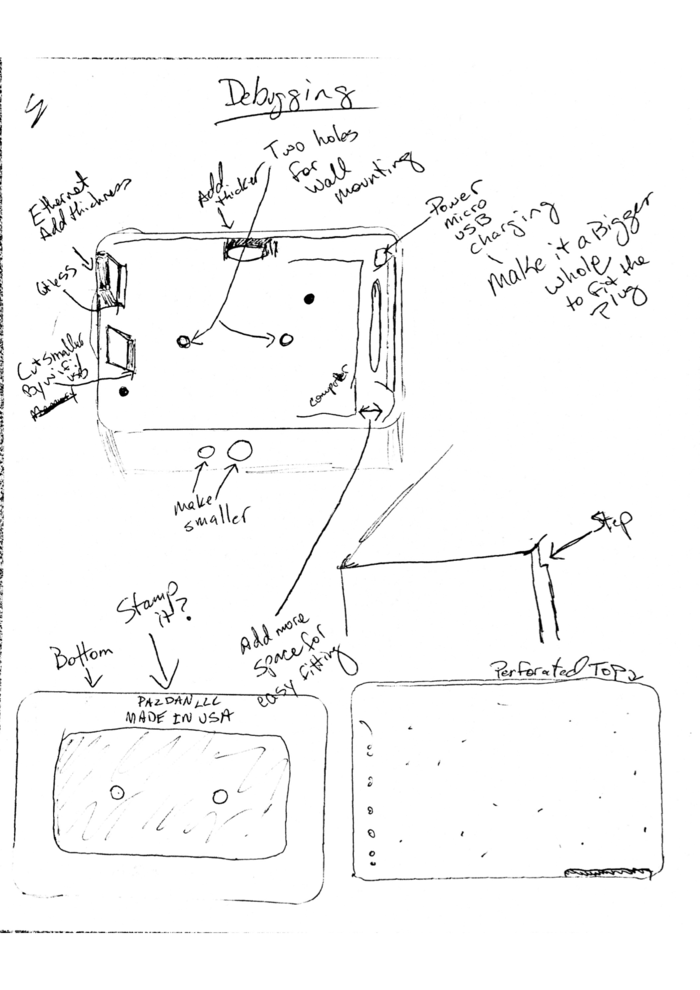 Debugging
Two holes
for
wall
mounting
Add
thicker
Ethernet
Add thickness
Power
micro
USB
charging
Make it a Bigger
whole
to fit the
Plug
Cut smaller
By wifi
usb
computer
make
smaller
Step
Stamp
it?
Add more
space for
easy fitting
Bottom
Perforated Top
PAZDAN LLC
MADE IN USA